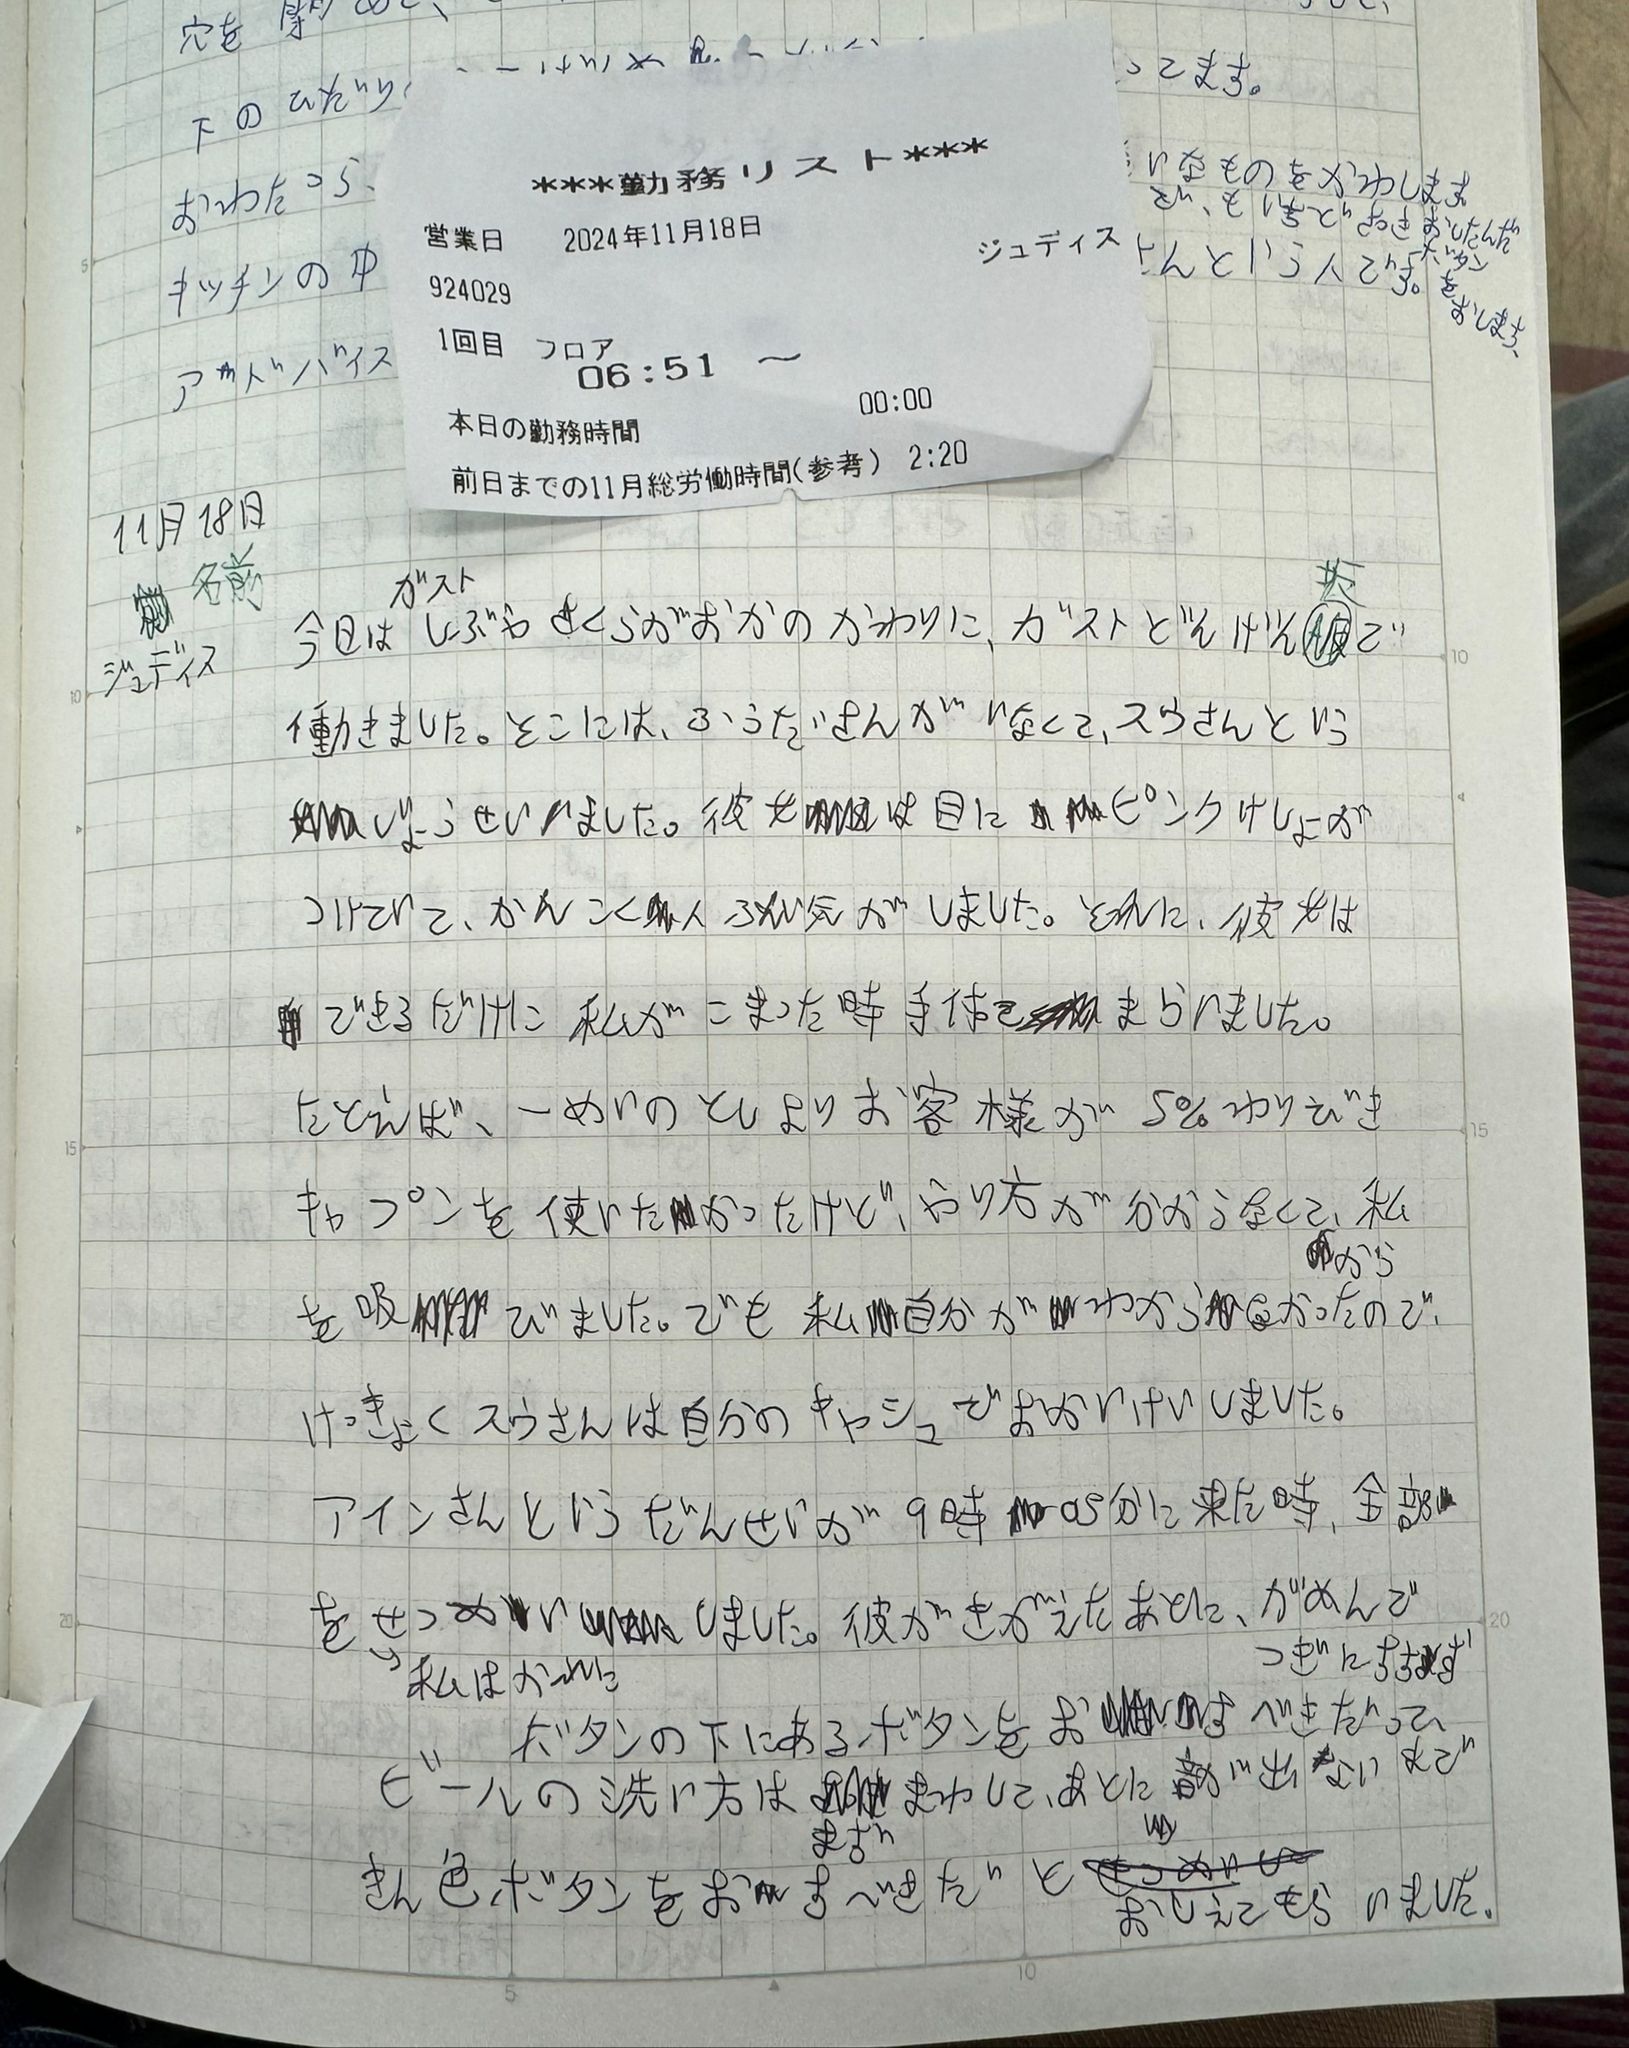 穴を
下のひだり
ってます。
おわたつら、
いなものをかわします
が、もいちどおきおしたんだ
キッチンの中
さんという人です。
ボタン
をおします。
アドバイス
***勤務リスト***
営業日 2024年11月18日
924029 ジュディス
1回目 フロア
06:51 ~
本日の勤務時間 00:00
前日までの11月総労働時間(参考) 2:20
11月18日
名前
ジュディス
ガスト
今日はしぶやさくらがおかのかわりに、ガストどんげんで
働きました。そこには、ふうださんがいなくて、スウさんという
じょうせいいました。彼女は目にピンクけしょが
つけていて、かんこく人ふんい気がしました。それに、彼女は
できるだけに私がこまった時手体てまらいました。
たとえば、一めいのとしよりお客様が5%わりびき
キャプンを使いたかったけど、やり方が分からなくて、私
から
を吸びました。でも私自分がわからなかったので、
けっきょくスウさんは自分のキャシュでおかいけいしました。
アインさんというだんせいが9時05分に来た時、全部
をせつめいしました。彼がきがえたあとに、がめんで
私はかれに
つぎに
ボタンの下にあるボタンをおすべきだって、
ビールの洗い方はまわして、あとに音が出ないまで
まず
きん色ボタンをおすべきだと
おしえてもらいました。